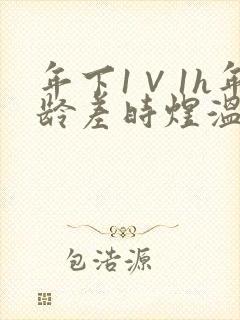 年下1V1h年
龄差时煜温
包浩源